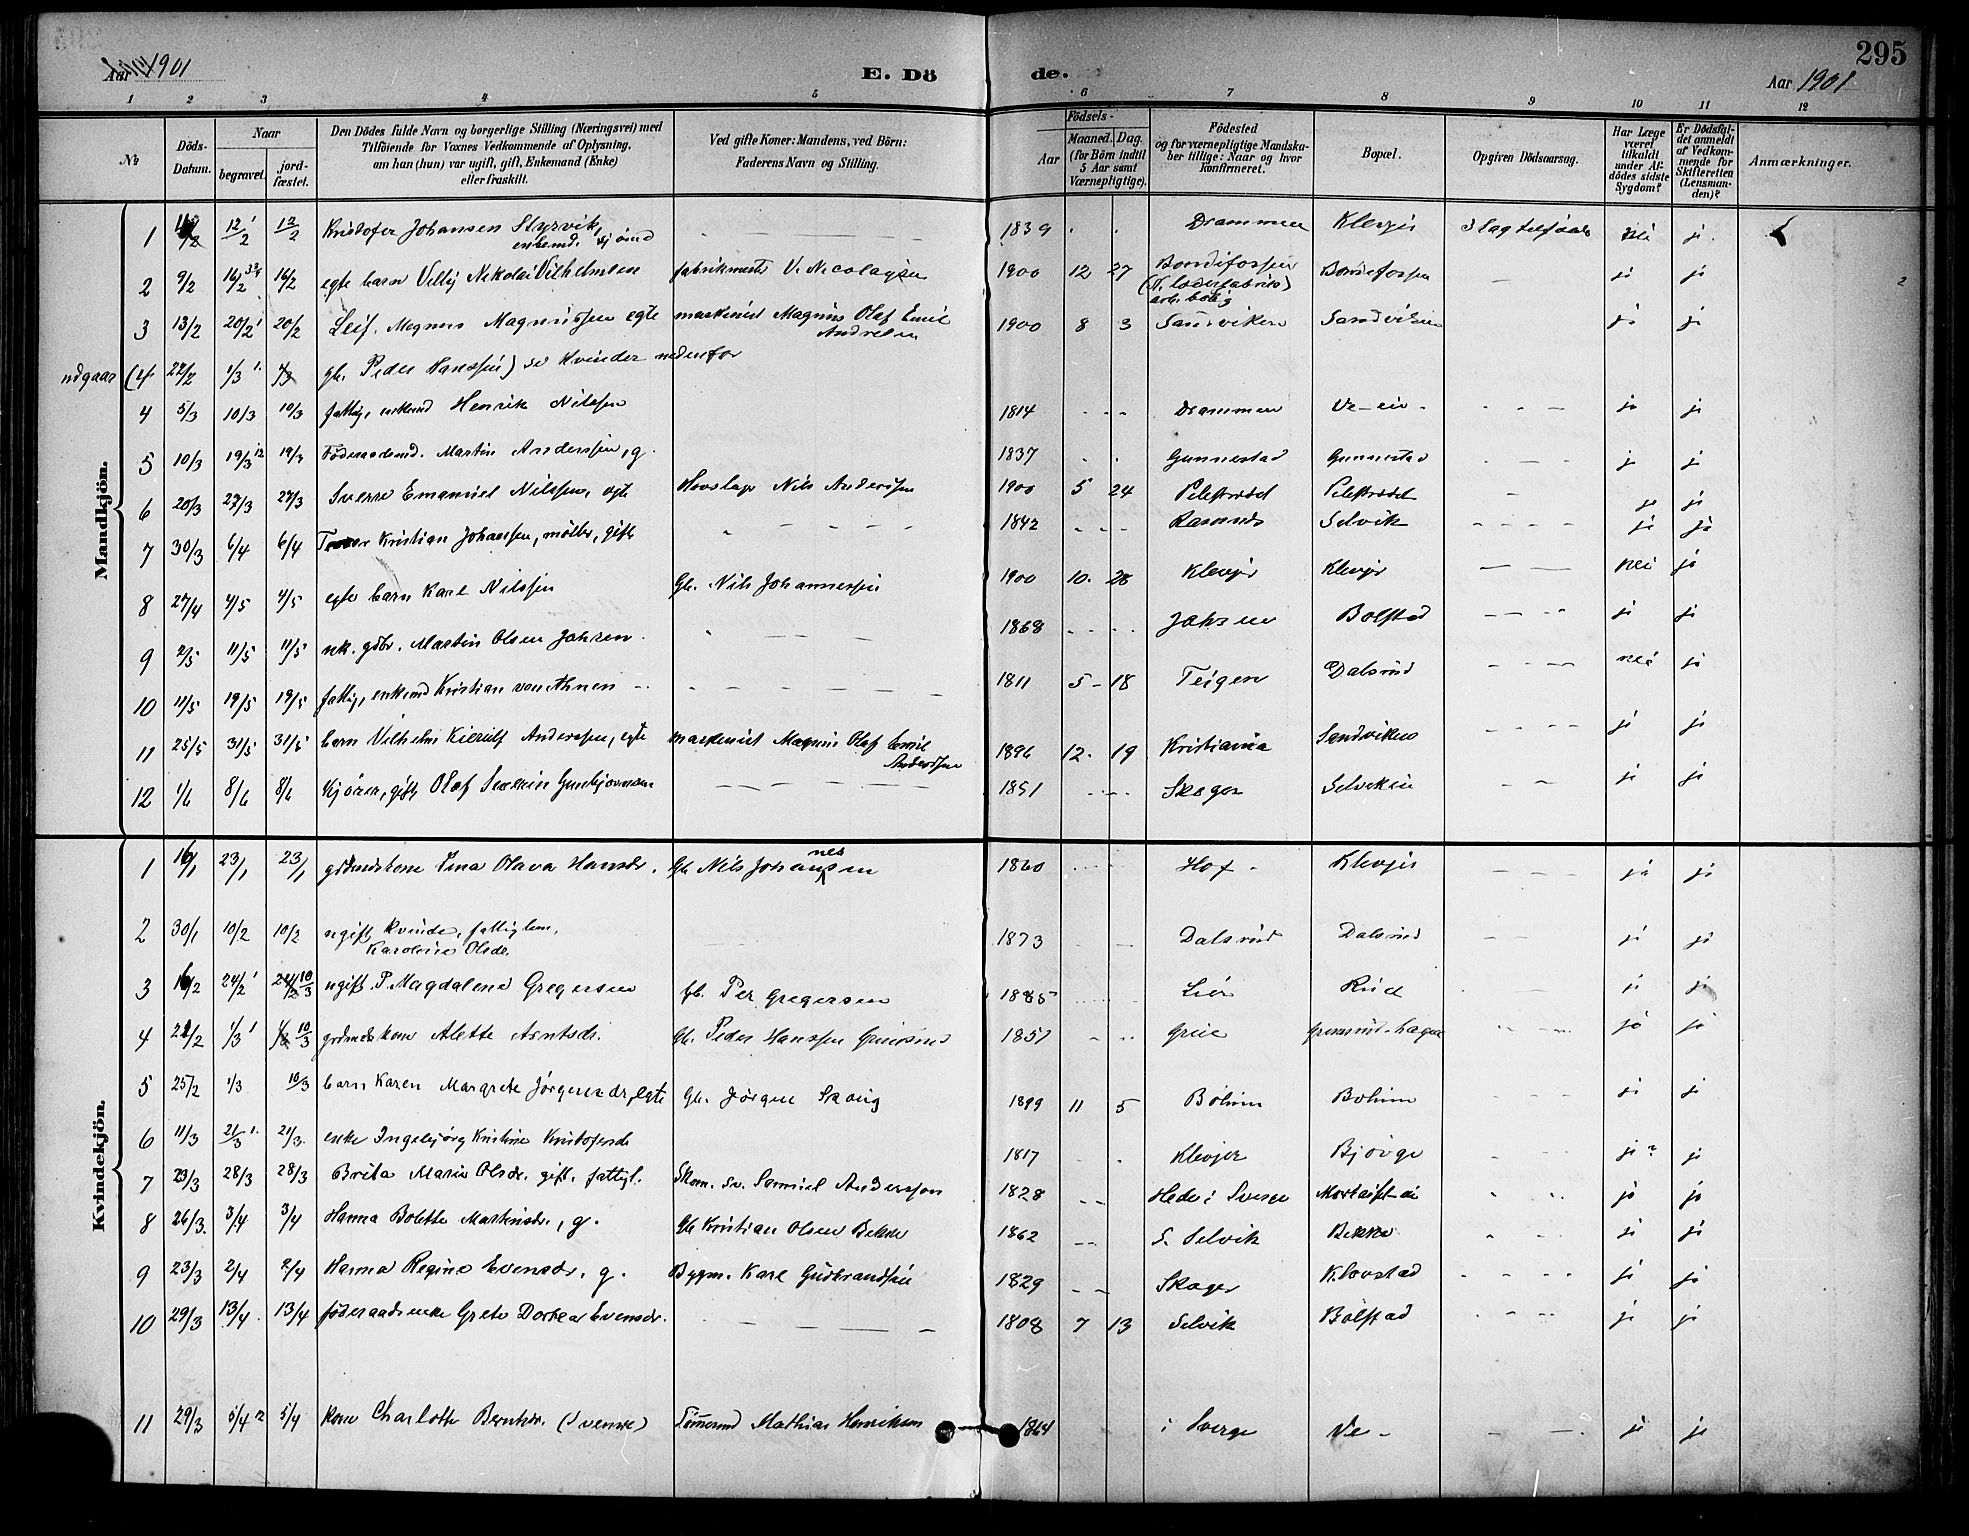 Aar 1901
E. Dö
de.
295
Aar 1901
1 2 3 4 5 6 7 8 9 10 11 12
No
Döds-Datum.
Naar
begravet.
jord-fæstet.
Den Dödes fulde Navn og borgerlige Stilling (Næringsvei) med
Tilföiende for Voxnes Vedkommende af Oplysning,
om han (hun) var ugift, gift, Enkemand (Enke)
eller fraskilt.
Ved gifte Koner: Mandens, ved Börn:
Faderens Navn og Stilling.
Födsels-
Aar
Maaned. Dag.
(for Börn indtil 5 Aar samt Værnepligtige).
Födested
og for værnepligtige Mandska-
ber tillige: Naar og hvor
konfirmeret.
Bopæl.
Opgiven Dödsaarsag.
Har Læge været tilkaldt under Af-dödes sidste Sygdom?
Er Dödsfal-det anmeldt af Vedkom-mende for Skifteretten (Lensman-den)?
Anmærkninger.
Mandkjön.
1 12/2 12/2 Kristofer Johansen Styrvik, enkemd. sjömd 1839 Drammen Klevjer Slagtilfælde nei ja
2 9/2 16/2 16/2 egte barn Villij Nikolai Vilhelmsen fabrikmester V. Nicolaysen 1900 12 27 Bondefossen Bondefossen ja ja
3 13/2 20/2 20/2 Leif Magnus Magnussen egte maskinist Magnus Olaf Emil Andresen 1900 8 3 Sandviken Sandviken ja ja
udgaar (4 22/2 1/3 1/3 gb. Peder Hanssen) se Kvinder nedenfor
4 5/3 10/3 10/3 fattig, enkemd Henrik Nilssen 1814 Drammen Ve-eie ja ja
5 10/3 19/3 19/3 Föderaadsmd. Martin Anderssen, g. 1837 Gunnestad Gunnestad ja ja
6 20/3 27/3 27/3 Sverre Emanuel Nilssen, egte Hovslager Nils Anderssen 1900 5 24 ja ja
7 30/3 6/4 6/4 Kristian Johanssen, möller, gift 1842 Selvik ja ja
8 27/4 4/5 4/5 egte barn Karl Nilssen Gb. Nils Johannessen 1900 10 28 Klevjer Klevjer nei ja
9 2/5 11/5 11/5 gdbr. Martin Olsen Jahren 1868 Jahren Bolstad ja ja
10 11/5 19/5 19/5 fattig, enkemd Kristian von Ahnen 1811 5 18 Teigen Dalsrud nei ja
11 25/5 31/5 31/5 barn Vilhelm Kierulf Anderssen, egte maskinist Magnus Olaf Emil Anderssen 1896 12 19 Kristiania Sandviken ja ja
12 1/6 8/6 8/6 Kjörer, gift, Olaf Severin 1851 Skoger Selviken ja ja
Kvindekjön.
1 16/1 23/1 23/1 grdmandskone Lina Olava Hansdr. Gb Nils Johannessen 1860 Hof Klevjer ja ja
2 30/1 10/2 10/2 ugift kvinde, fattiglem, Karoline Olsdr. 1873 Dalsrud Dalsrud ja ja
3 16/2 24/2 24/2 10/3 ugift P. Magdalene Gregersen Gb. Per Gregersen 1885 Lier Rud ja ja
4 22/2 1/3 1/3 10/3 grdmandskone Alette Arntsdr. Gb. Peder Hanssen 1857 ja ja
5 25/2 1/3 10/3 barn Karen Margrete Jörgensdr, egte Gb. Jörgen Skoug 1899 11 5 Böhim Bohim ja ja
6 11/3 21/3 21/3 enke Ingebjörg Kristine Kristofersdr 1817 Klevjer Björge ja? ja
7 23/3 28/3 28/3 Brita Maria Olsdr. gift, fattigl. Skom. sv. Samuel Andersson 1828 Hede i Sverge ja ja
8 26/3 3/4 3/4 Hanna Bolette Martinsdr., g. Gb Kristian Olsen Bekke 1862 S. Selvik Bekke ja ja
9 23/3 2/4 2/4 Hanna Regine Evensdr, g. Bygm. Karl Gudbrandsen 1829 Skoger Klovstad ja ja
10 29/3 13/4 13/4 föderaadsenke Grete Dorthea Evensdr. 1808 7 13 Selvik Bolstad ja ja
11 29/3 5/4 5/4 kone Charlotte Berntsdr. (svenske) Tömmermd Mathias Henriksen 1864 i Sverge Ve ja ja